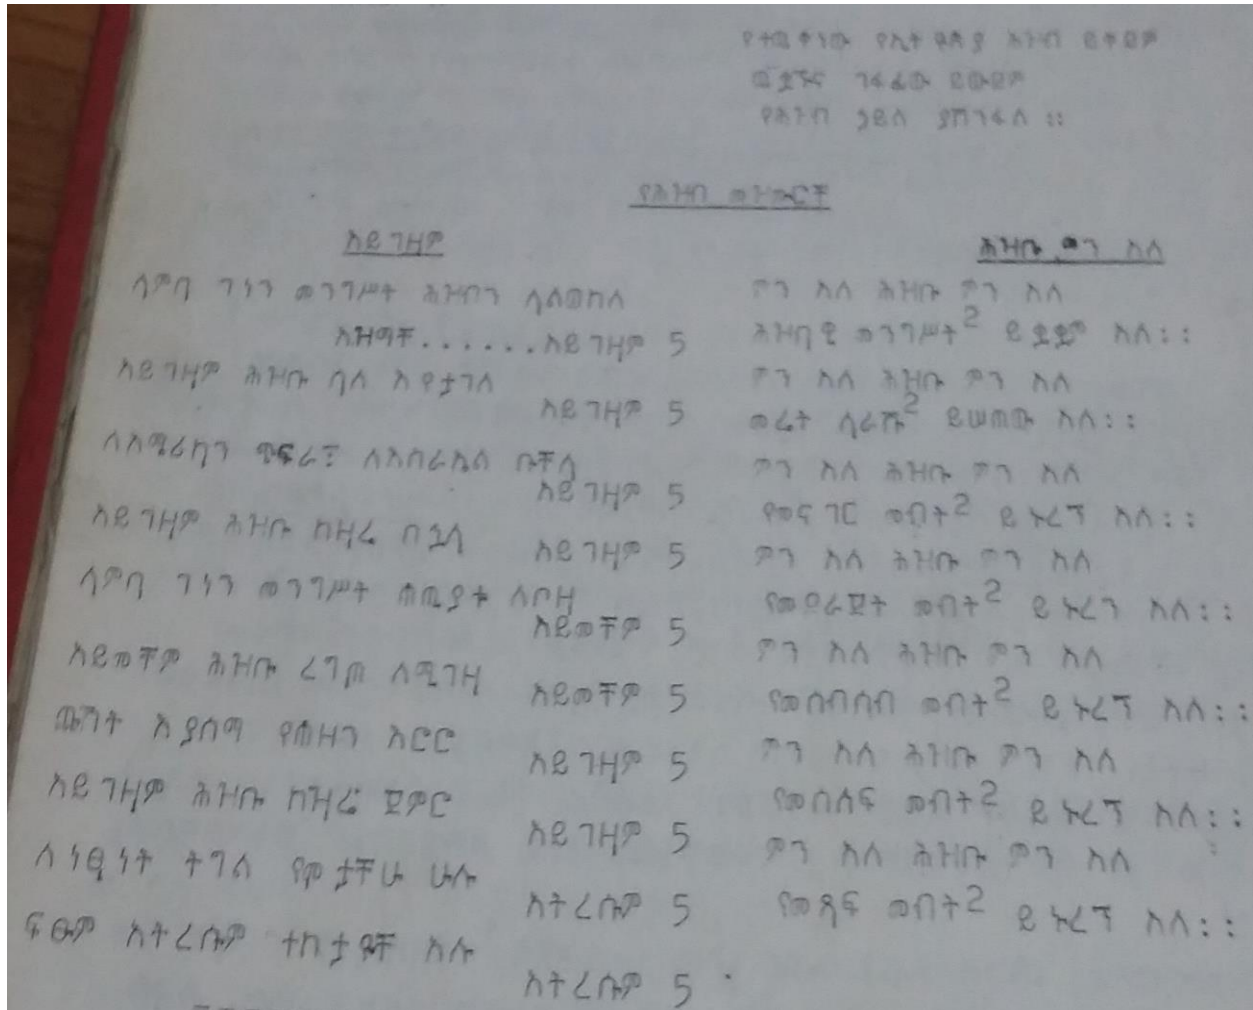 የተጨቀነው የኢትዮጵያ ሕዝብ ይቀድም
ጨቋኙና ገፋፊው ይውደም
የሕዝብ ኃይል ያሸንፋል ።
የሕዝብ መዝሙሮች
አይገዛም
ላምባ ንነን መንግሥት ሕዝብን ሳልወከለ
አዝማች......አይገዛም 5
አይገዛም ሕዝቡ ሳለ እየታገለ
አይገዛም 5
ለአሜሪካን ጭፍራ ለእስራኤል ቡችላ
አይገዛም 5
አይገዛም ሕዝቡ ከዛሬ በኋላ
አይገዛም 5
ላምባ ንነን መንግሥት ጠጪያቱ ለቦዛ
አይመችም 5
አይመችም ሕዝቡ ረግጦ ለሚገዛ
አይመችም 5
ጩኸት እያሰማ የጠዘን እርር
አይገዛም 5
አይገዛም ሕዝቡ ከዛሬ ጀምር
አይገዛም 5
ለነፃነት ትግል የሞታችሁ ሁሉ
አትረሱም 5
ፍፁም አትረሱም ተከታዮች አሉ
አትረሱም 5
ሕዝቡ ምን አለ
ምን አለ ሕዝቡ ምን አለ
ሕዝባዊ መንግሥት2 ይቋቋም አለ።
ምን አለ ሕዝቡ ምን አለ
መሬት ላራሹ2 ይሠጠው አለ።
ምን አለ ሕዝቡ ምን አለ
የመናገር መብት2 ይኑረኝ አለ።
ምን አለ ሕዝቡ ምን አለ
የመደራጀት መብት2 ይኑረን አለ።
ምን አለ ሕዝቡ ምን አለ
የመሰብሰብ መብት2 ይኑረኝ አለ።
ምን አለ ሕዝቡ ምን አለ
የመሰለፍ መብት2 ይኑረኝ አለ።
ምን አለ ሕዝቡ ምን አለ
የመጻፍ መብት2 ይኑረኝ አለ።